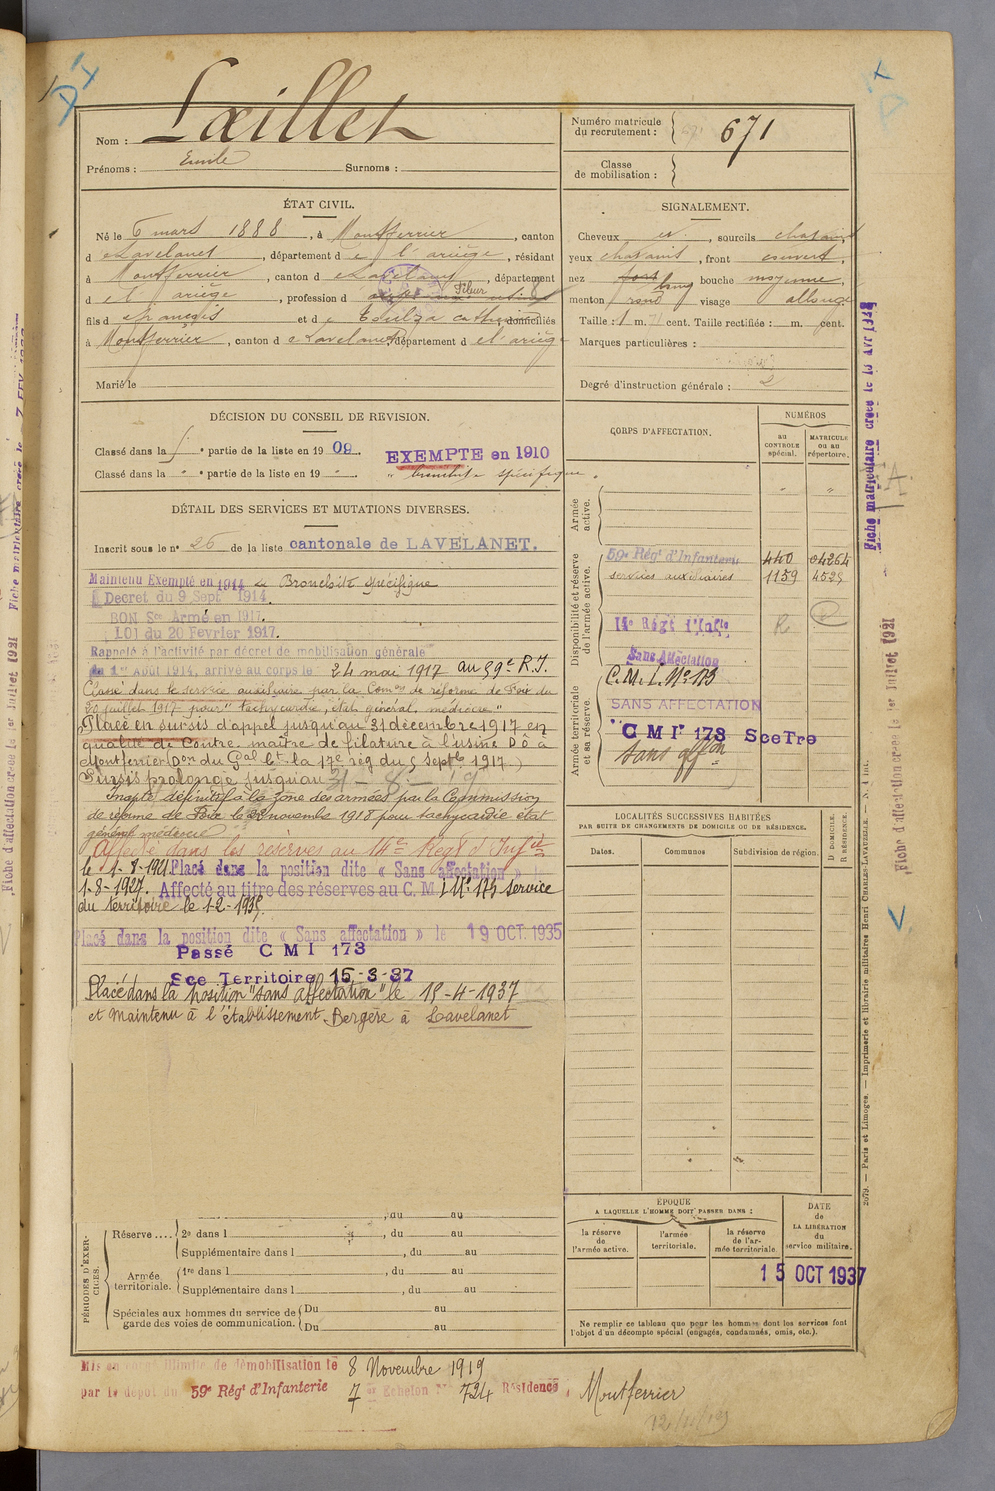 Nom : Laeillet
Prénoms : Emile Surnoms :
Numéro matricule du recrutement : 671
Classe de mobilisation :
ÉTAT CIVIL.
Né le 6 mars 1888, à Montferrier, canton
d e Lavelanet, département d e l'ariège, résidant
à Montferrier, canton d e Lavelanet, département
d e l'ariège, profession d Fileur
fils d e François et d e Toulza Catherine domiciliés
à Montferrier, canton d e Lavelanet, département d e l'ariège
Marié le
SIGNALEMENT.
Cheveux , sourcils chatains
yeux chatains, front ouvert,
nez long bouche moyenne,
menton rond visage allongé
Taille : 1 m. 71 cent. Taille rectifiée : m. cent.
Marques particulières :
Degré d'instruction générale : 2
DÉCISION DU CONSEIL DE REVISION.
Classé dans la " partie de la liste en 19 09. EXEMPTE en 1910
Classé dans la " " partie de la liste en 19 " " bronchite spécifique
DÉTAIL DES SERVICES ET MUTATIONS DIVERSES.
Inscrit sous le n° 26 de la liste cantonale de LAVELANET.
Maintenu Exempté en 1914 Bronchite spécifique
Decret du 9 Sept 1914
BON Sce Armé en 1917.
LOI du 20 Fevrier 1917.
Rappelé à l'activité par décret de mobilisation générale
du 1er Août 1914, arrivé au corps le 24 mai 1917 au 59e R.I.
Classé dans le service auxiliaire par la Comon de réforme de Foix du
20 juillet 1917 pour "tachycardie, état général, médiocre"
Placé en sursis d'appel jusqu'au 31 décembre 1917 en
qualité de Contre-maître de filature à l'usine Dô à
Montferrier (Don du Gal Ct la 17e rég du 5 septbre 1917.)
Sursis prolongé jusqu'au 31
Inapte définitif à la zone des armées par la Commission
de réforme de Foix le 22 novembre 1918 pour tachycardie état
général médiocre
Affecté dans les réserves au 14e Régt d'Infie
le 1-8-1921. Placé dans la position dite « Sans affectation » le
1-8-1927. Affecté au titre des réserves au C. M. I N° 173 service
du territoire le 1-2-1935.
Placé dans la position dite « Sans affectation » le 19 OCT. 1935
Passé CMI 173
Sce Territoire 15-3-37
Placé dans la position "sans affectation" le 15-4-1937
et maintenu à l'établissement Bergère à Lavelanet
CORPS D'AFFECTATION.
NUMÉROS
au CONTROLE spécial.
MATRICULE ou au répertoire.
Armée active.
" "
Disponibilité et réserve de l'armée active.
59e Régt d'Infanterie 440 04264
services auxiliaires 1159 4525
14e Régt d'Infie R
Sans Affectation
Armée territoriale et sa réserve.
C.M.I. N° 173
SANS AFFECTATION
CMIr 173 Sce Tre
Sans affon
LOCALITÉS SUCCESSIVES HABITÉES
PAR SUITE DE CHANGEMENTS DE DOMICILE OU DE RÉSIDENCE.
Dates. Communes Subdivision de région. D DOMICILE. R RÉSIDENCE.
ÉPOQUE
A LAQUELLE L'HOMME DOIT PASSER DANS :
la réserve de l'armée active.
l'armée territoriale.
la réserve de l'armée territoriale.
DATE de LA LIBÉRATION du service militaire.
15 OCT 1937
Ne remplir ce tableau que pour les hommes dont les services font
l'objet d'un décompte spécial (engagés, condamnés, omis, etc.).
PÉRIODES D'EXERCICES.
, du au
Réserve .... 2e dans l , du au
Supplémentaire dans l , du au
Armée territoriale. 1re dans l , du au
Supplémentaire dans l , du au
Spéciales aux hommes du service de garde des voies de communication. Du au
Du au
Mis en congé illimité de démobilisation le 8 Novembre 1919
par le dépôt du 59e Régt d'Infanterie 7 Echelon N° 724 Résidence, Montferrier
Fiche matriculaire créée le 15 Avr 1948
Fiche d'affectation créée le 1er Juillet 1921
2079. — Paris et Limoges. — Imprimerie et librairie militaires Henri CHARLES-LAVAUZELLE.